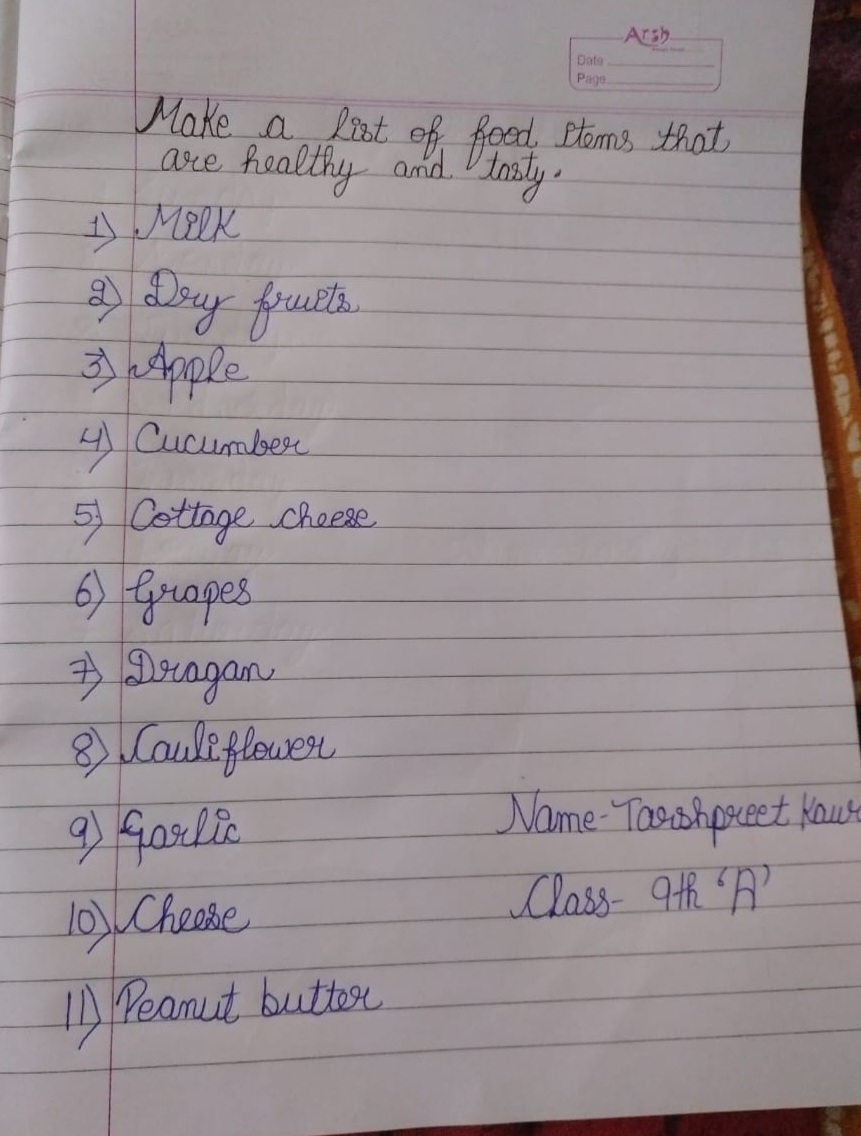 Arsh
Date
Page
Make a list of food items that
are healthy and tasty.
1) Milk
2) Dry fruits
3) Apple
4) Cucumber
5) Cottage cheese
6) Grapes
7) Dragan
8) Cauliflower
9) Garlic
Name-Tarshpreet Kaur
10) Cheese
Class- 9th 'A'
11) Peanut butter